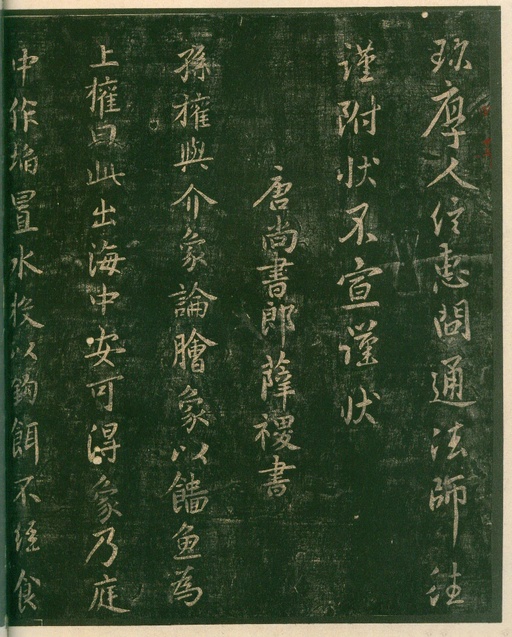 孱人信惠問通法師往
謹附狀不宣謹狀
唐尚書郎薛稷書
孫權與介象論膾象以鯔魚為
上權曰此出海中安可得象乃庭
中作埳置水投以鉤餌不終食